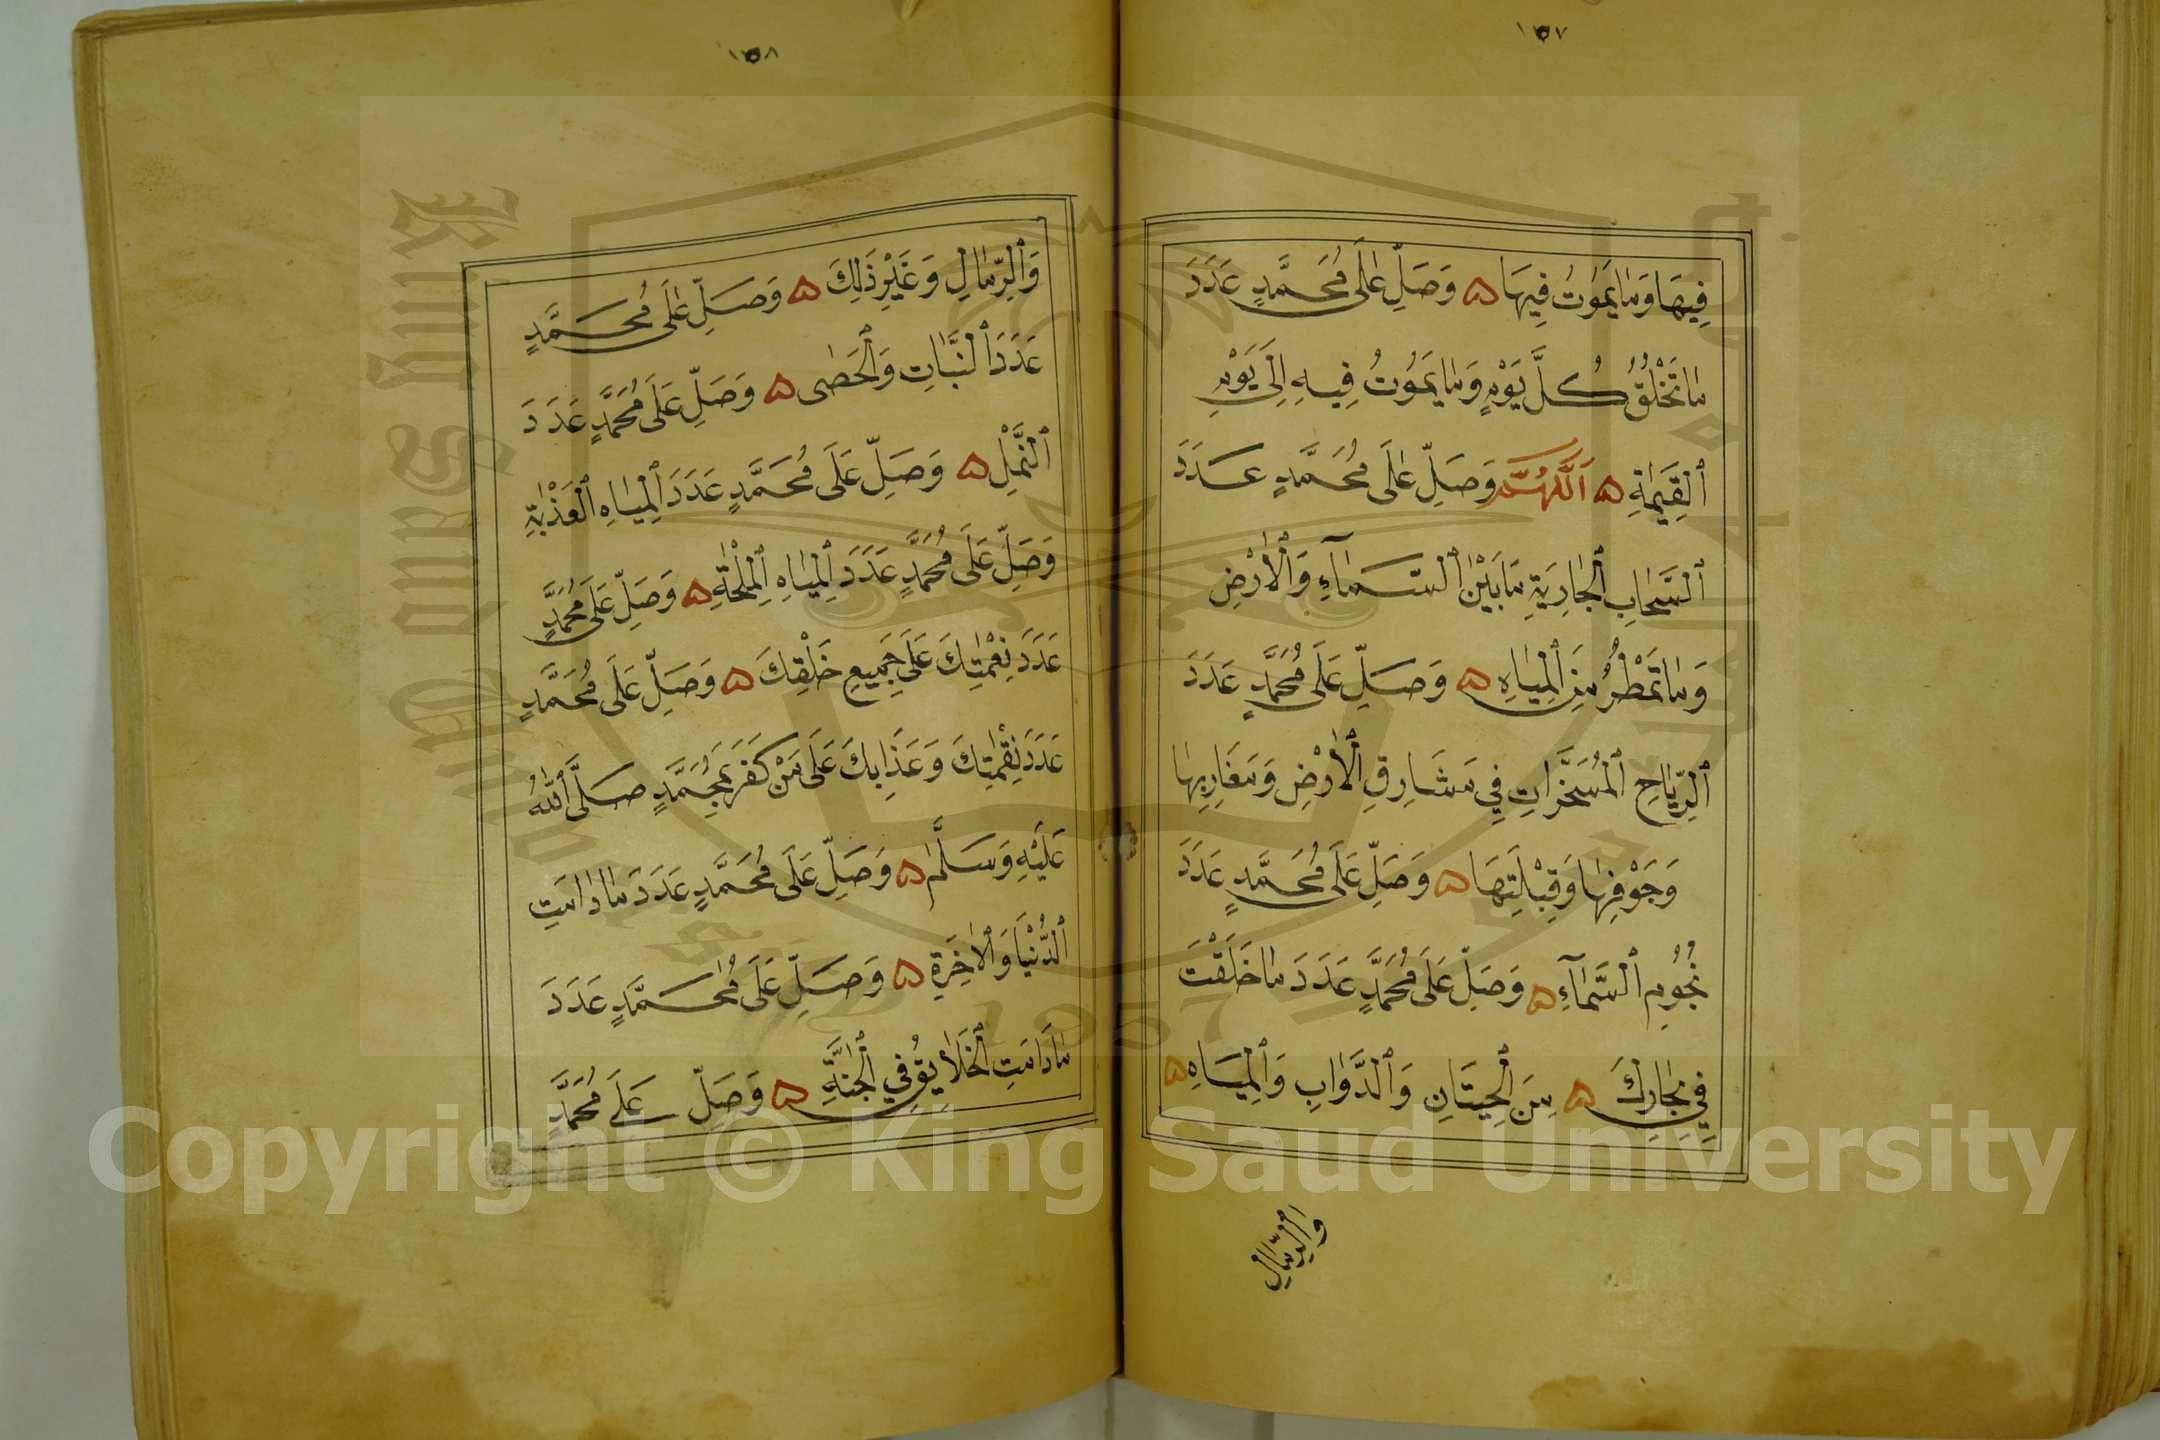 ١٥٧
فِيهَا وَمَا يَمُوتُ فِيهَا ۞ وَصَلِّ عَلَى مُحَمَّدٍ عَدَدَ
مَا تَخْلُقُ كُلَّ يَوْمٍ وَمَا يَمُوتُ فِيهِ إِلَى يَوْمِ
ٱلْقِيَمَةِ ۞ اَللَّهُمَّ وَصَلِّ عَلَى مُحَمَّدٍ عَدَدَ
ٱلسَّحَابِ ٱلْجَارِيَةِ مَا بَيْنَ ٱلسَّمَآءِ وَٱلْأَرْضِ
وَمَا تَمْطُرُ مِنَ ٱلْمِيَاهِ ۞ وَصَلِّ عَلَى مُحَمَّدٍ عَدَدَ
ٱلرِّيَاحِ ٱلْمُسَخَّرَاتِ فِي مَشَارِقِ ٱلْأَرْضِ وَمَغَارِبِهَا
وَجَوْفِهَا وَقِبْلَتِهَا ۞ وَصَلِّ عَلَى مُحَمَّدٍ عَدَدَ
نُجُومِ ٱلسَّمَآءِ ۞ وَصَلِّ عَلَى مُحَمَّدٍ عَدَدَ مَا خَلَقْتَ
فِي بِحَارِكَ ۞ مِنَ ٱلْحِيتَانِ وَٱلدَّوَابِ وَٱلْمِيَاهِ ۞
وَٱلرِّمَالِ
١٥٨
وَٱلرِّمَالِ وَغَيْرِ ذَلِكَ ۞ وَصَلِّ عَلَى مُحَمَّدٍ
عَدَدَ ٱلنَّبَاتِ وَٱلْحَصَى ۞ وَصَلِّ عَلَى مُحَمَّدٍ عَدَدَ
ٱلنَّمْلِ ۞ وَصَلِّ عَلَى مُحَمَّدٍ عَدَدَ ٱلْمِيَاهِ ٱلْعَذْبَةِ
وَصَلِّ عَلَى مُحَمَّدٍ عَدَدَ ٱلْمِيَاهِ ٱلْمِلْحَةِ ۞ وَصَلِّ عَلَى مُحَمَّدٍ
عَدَدَ نِعْمَتِكَ عَلَى جَمِيعِ خَلْقِكَ ۞ وَصَلِّ عَلَى مُحَمَّدٍ
عَدَدَ نِقْمَتِكَ وَعَذَابِكَ عَلَى مَنْ كَفَرَ بِمُحَمَّدٍ صَلَّى ٱللهُ
عَلَيْهِ وَسَلَّمَ ۞ وَصَلِّ عَلَى مُحَمَّدٍ عَدَدَ مَا دَامَتِ
ٱلدُّنْيَا وَٱلْآخِرَةِ ۞ وَصَلِّ عَلَى مُحَمَّدٍ عَدَدَ
مَا دَامَتِ ٱلْخَلَايِقُ فِي ٱلْجَنَّةِ ۞ وَصَلِّ عَلَى مُحَمَّدٍ
King Saud University
1957
Copyright © King Saud University